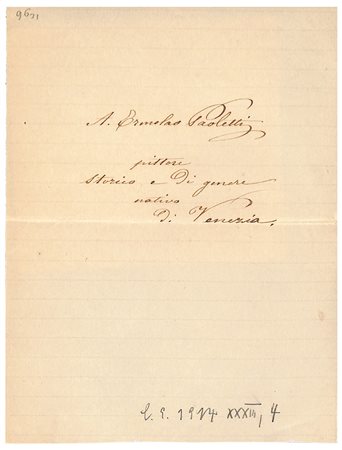 9671
A. Ermolao Paoletti
pittore
storico e di genere
nativo
di Venezia.
C. E. 1914 XXXIII, 4